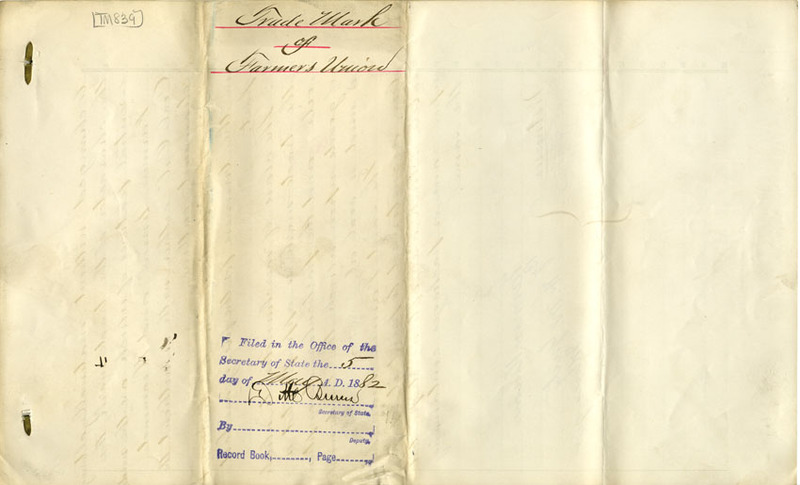 [TM839]
Trade Mark
of
Farmers Union
Filed in the Office of the
Secretary of State the 5
day of May A. D. 1882
Secretary of State.
By
Deputy.
Record Book, , Page